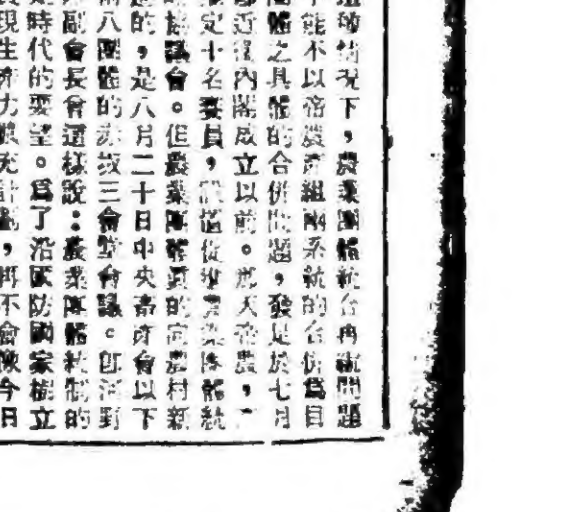 情况下，農業團體統合再編問題
能不以帝農產組兩系統的合併爲目
團體之具體的合併問題，發足於七月
近衞內閣成立以前。那天帝農，
定十名委員，促進農業團體統
協議會。但農業團體眞的向農村新
的，是八月二十日中央畜產會以下
八團體的赤坂三會堂會議。卽河野
副會長會這樣說：農業團體統制的
時代的要望。爲了沿國防國家樹立
現生產力擴充計劃，再不會像今日